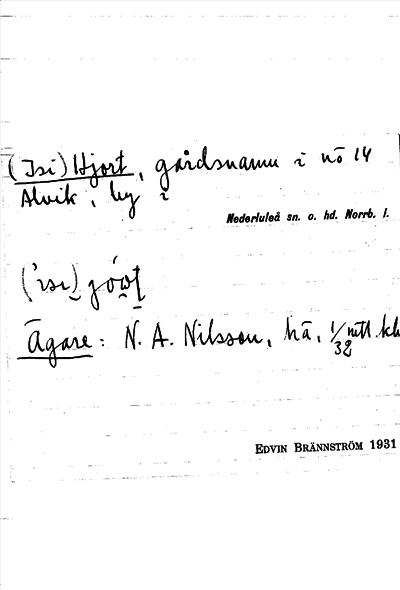 (Isi) Hjort, gårdsnamn i nō 14
Alvik, by i
Nederluleå sn. o. hd. Norrb. l.
Ägare: N. A. Nilsson, hā, 1/32 mtl. kl
EDVIN BRÄNNSTRÖM 1931